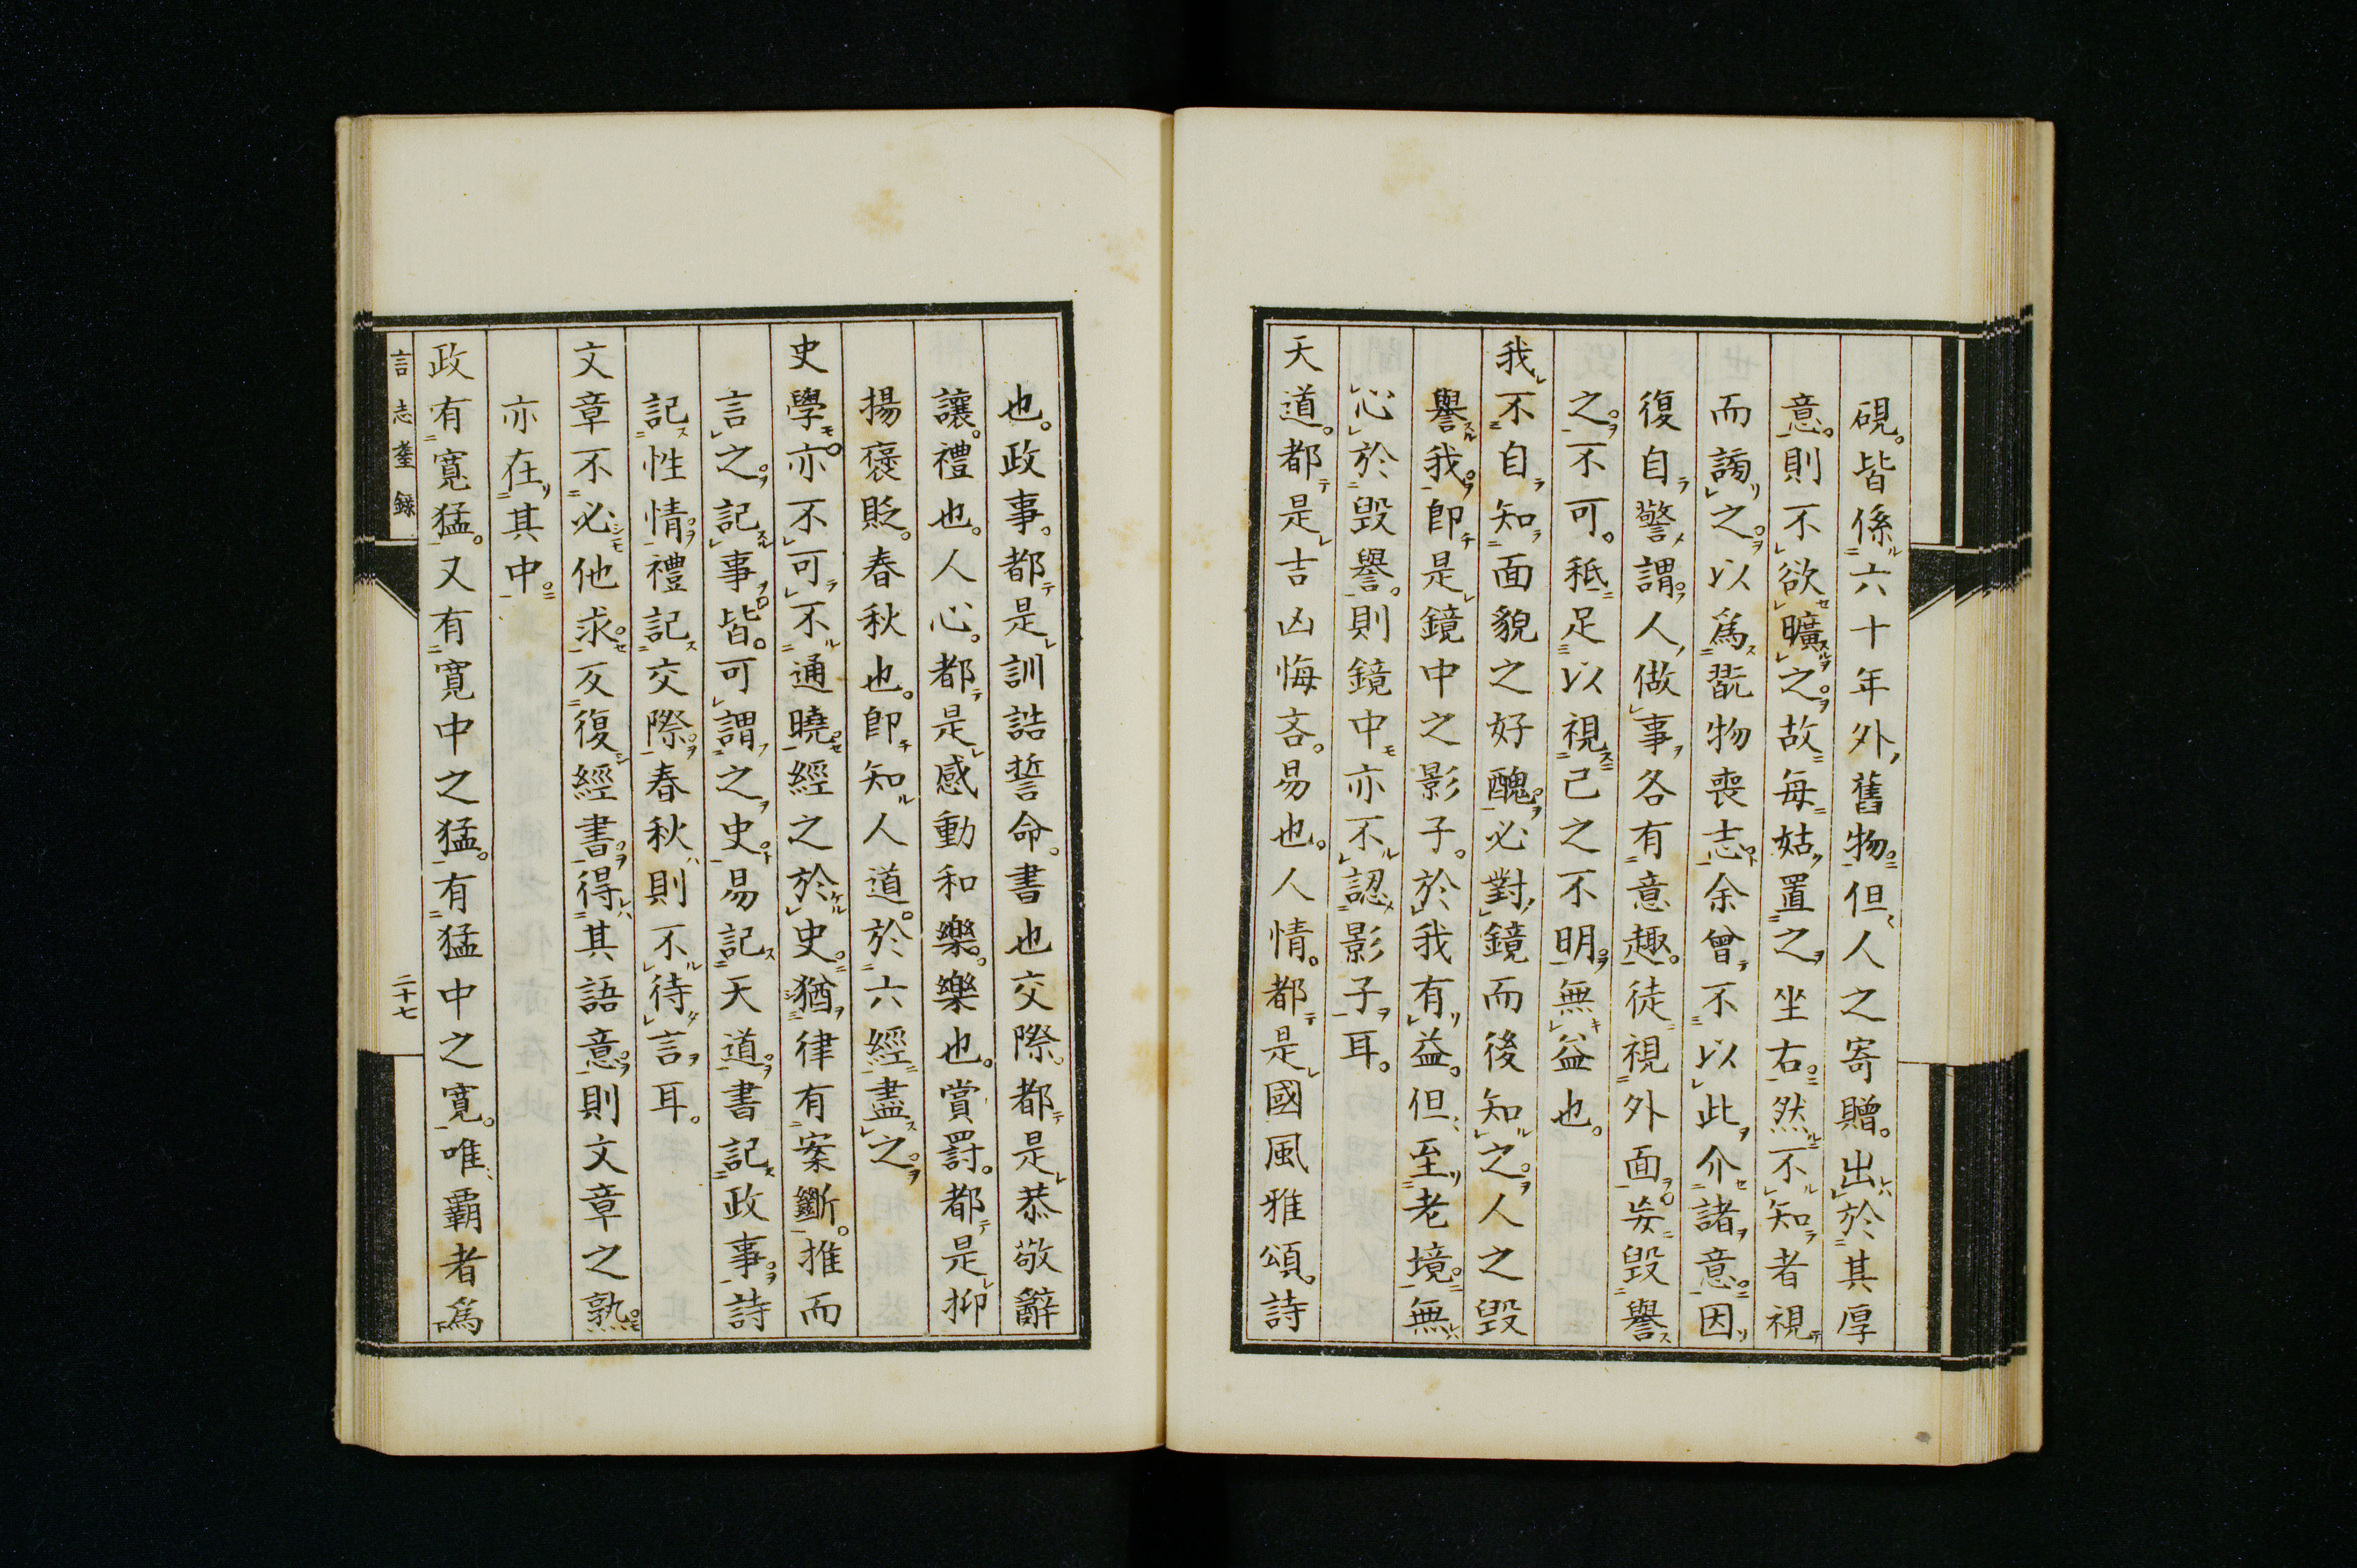 硯。皆係六十年外舊物。但人之寄贈。出於其厚
意。則不欲曠之。故每姑置之坐右。然不知者視
而謭之。以爲翫物喪志。余曾不以此介諸意。因
復自警謂。人做事。各有意趣。徒視外面。妄毀譽
之。不可。秪足以視己之不明。無益也。
我不自知面貌之好醜。必對鏡而後知之。人之毀
譽我。即是鏡中之影子。於我有益。但至老境。無
心於毀譽。則鏡中亦不認影子耳。
天道。都是吉凶悔吝。易也。人情。都是國風雅頌。詩
也。政事。都是訓誥誓命。書也交際。都是恭敬辭
讓。禮也。人心。都是感動和樂。樂也。賞罰。都是抑
揚褒貶。春秋也。即知人道。於六經盡之。
史學亦不可不通曉。經之於史。猶律有案斷。推而
言之。記事皆。可謂之史。易記天道。書記政事。詩
記性情。禮記交際。春秋則不待言耳。
文章不必他求。反復經書。得其語意。則文章之熟
亦在其中。
政有寬猛。又有寬中之猛。有猛中之寬。唯霸者爲
言志耋錄
二十七